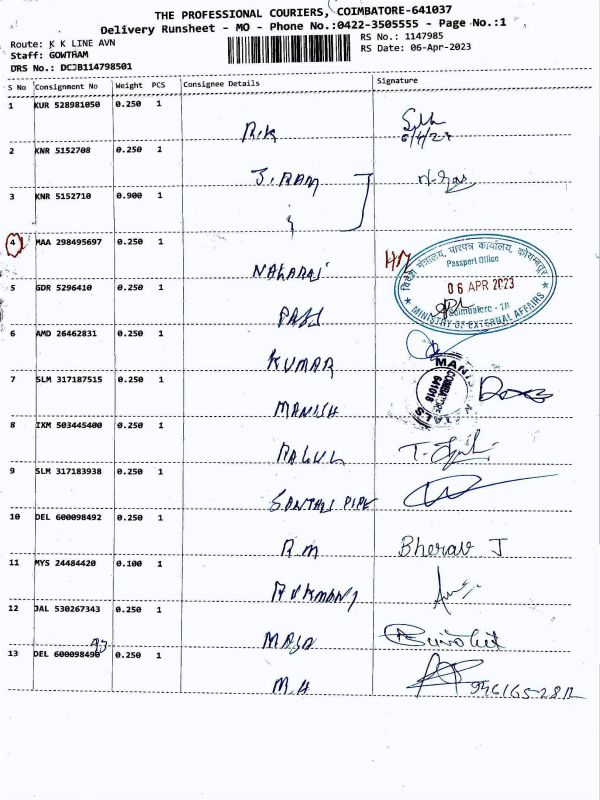 THE PROFESSIONAL COURIERS, COIMBATORE-641037
Delivery Runsheet - MO - Phone No.:0422-3505555 - Page No.:1
Route: K K LINE AVN
RS No.: 1147985
Staff: GOWTHAM
RS Date: 06-Apr-2023
DRS No.: DCJB114798501
S No Consignment No Weight PCS Consignee Details Signature
1 KUR 528981050 0.250 1
R.K
6/4/23
2 KNR 5152708 0.250 1
J. RAM
3 KNR 5152710 0.900 1
4 MAA 298495697 0.250 1
NAGARAJ
विदेश मंत्रालय, पारपत्र कार्यालय, कोयम्बत्तूर
Passport Office
06 APR 2023
Coimbatore - 18
MINISTRY OF EXTERNAL AFFAIRS
5 GDR 5296410 0.250 1
PASS
6 AMD 26462831 0.250 1
KUMAR
7 SLM 317187515 0.250 1
MANISH
MANISH METALS
COIMBATORE
641018
8 IXM 503445400 0.250 1
9 SLM 317183938 0.250 1
PIPE
10 DEL 600098492 0.250 1
R m
Bherav J
11 MYS 24484420 0.100 1
RUKMANI
12 JAL 530267343 0.250 1
13 DEL 600098490 0.250 1
93
M.H